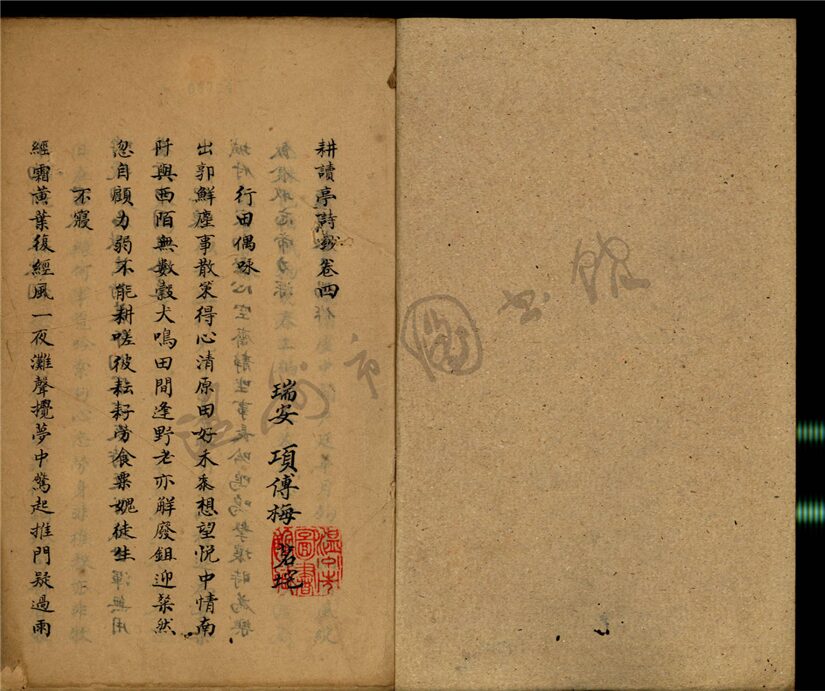 耕讀亭詩鈔卷四
瑞安 項傅梅 茗垞
行田偶咏
出郭鮮塵事散策得心清原田好禾黍想望悦中情南
阡與西陌無數轂犬鳴田間逢野老亦觧廢鉏迎粲然
忽自顧力弱不能耕嗟彼耘耔勞食粟媿徒生
不寢
經霜黄葉復經風一夜灘聲攪夢中驚起推門疑過雨
温州市圖書館